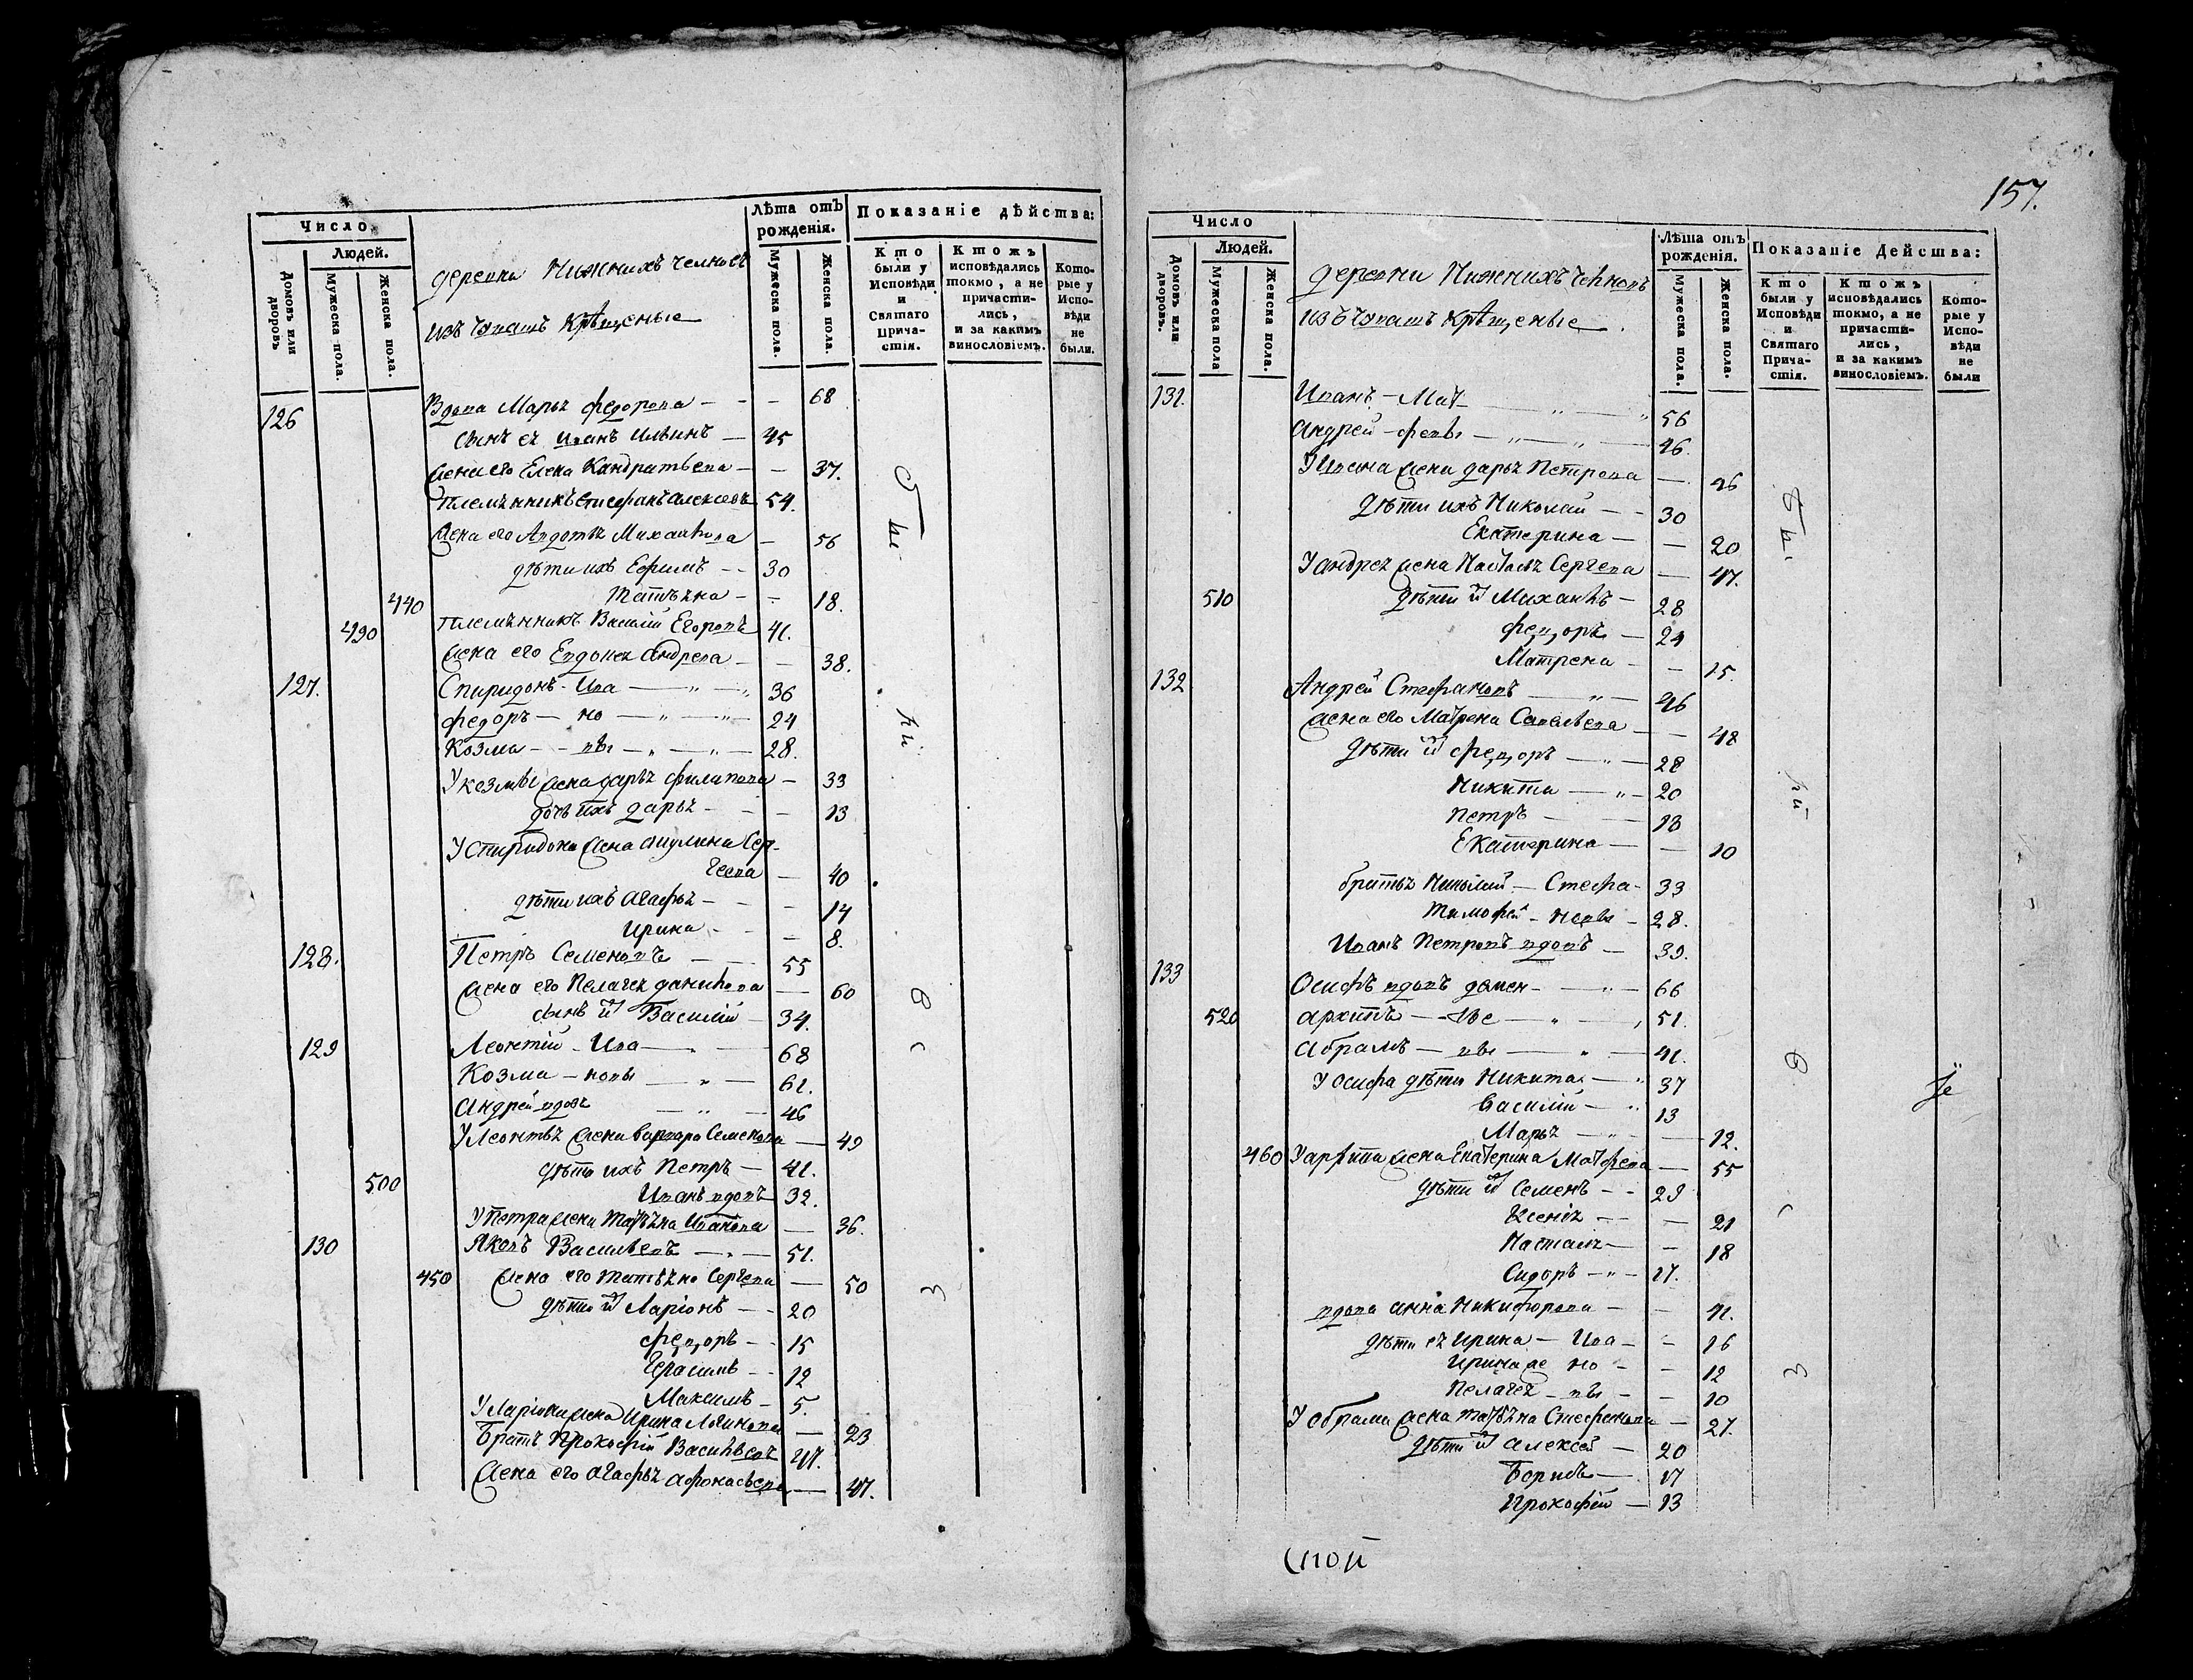 Число
Людей.
Домовъ или дворовъ
Мужеска пола.
Женска пола.
деревни Нижнихъ Челновъ
изъ Чювашъ Крѣщеные
Лѣта отъ рожденія.
Мужеска пола.
Женска пола.
Показаніе дѣйства:
Кто были у Исповѣди и Святаго Причастія.
Ктожъ исповѣдались токмо, а не причастились, и за какимъ винословіемъ.
Которые у Исповѣди не были.
126 Вдова Марья Федорова - - - 68
сынъ ея Иванъ Ильинъ — 45
Жена его Елена Кандратьева — — 37.
племянникъ Стефанъ Алексеевъ 54.
Жена его Авдотья Михаилова — 56
дѣти ихъ Ефимъ -- 30
440 Татьяна - - 18.
490 племянникъ Василій Егоровъ 41.
Жена его Евдокея Андреева — — 38.
127. Спиридонъ - Ива — „ — „ 36
Федоръ — но — „ — „ — 24
Козма — — вы — „ — „ — 28.
У Козмы Жена Дарья Филипова — 33
дочь ихъ Дарья - - - 13
У Спиридона Жена Акулина Сер-
геева — 40
дѣти ихъ Агафья - - - 14
Ирина - - - 8.
128. Петръ Семеновъ — — 55
Жена его Пелагея Данилова — 60
сынъ их Василій — 34.
129 Леонтій - Ива — „ — 68
Козма — новы — „ — 61.
Андрей вдовъ — „ — 46
У Леонтья Жена Варвара Семенова — 49
дѣти ихъ Петръ — 41.
500 Иванъ вдовъ 32.
У Петра Жена Татьяна Иванова — 36.
130 Яковъ Васильевъ — „ — 51.
450 Жена его Татьяна Сергева — 50
дѣти их Ларіонъ — - 20
Федоръ — - 15
Герасимъ - - 12
Максимъ - 5.
У Ларіона Жена Ирина Логинова — 23
Братъ Прокофій Васильевъ 47.
Жена его Агафья Афонасьева — 47.
бы
ли
в
с
з
157.
Число
Людей.
Домовъ или дворовъ.
Мужеска пола
Женска пола.
деревни Нижнихъ Челновъ
изъ Чювашъ Крѣщеные
Лѣта отъ рожденія.
Мужеска пола.
Женска пола.
Показаніе Действа:
Кто были у Исповѣди и Святаго Причастія.
Ктожъ исповѣдались токмо, а не причастились, и за какимъ винословіемъ.
Которые у Исповѣди не были
131. Иванъ — Мат — „ — „ 56
Андрей — февы — „ — „ — 46.
У Ивана Жена Дарья Петрова — 46
дѣти ихъ Николай — - 30
Екатерина — — 20
У Андрея Жена Настасья Сергева — 47.
510 дѣти их Михаилъ — 28
Федоръ — 24
Матрена - - 15.
132 Андрей Стефановъ — „ — 46
Жена его Матрена Савельева — — 48
дѣти их Федоръ — „ — 28
Никита — „ — 20
Петръ — — 18
Екатерина — — 10
братья Николай — Стефа- 33
Тимофей - новы - 28.
Иванъ Петровъ вдовъ — 39.
133 Осифъ вдовъ Демен- — „ — 66
520 Архипъ — — тье — „ — „ 51.
Абрамъ — вы — „ — 41.
У Осифа дѣти Никита — „ 37
Василій — „ 13
Марья — „ — 12.
460 У Архипа Жена Екатерина Матфева — 55
дѣти их Семенъ — - 29
Ксенія — — 21
Настасья — - 18
Сидоръ — „ - 17.
вдова Анна Никифорова — - 41.
дѣти ея Ирина — Ива — - 16
Ирина же но - - 12
Пелагея — вы - - 10
У Обрама Жена Татьяна Стефанова — 27.
дѣти их Алексей — 20
Борисъ — 17
Прокофій — 13
бы
ли
в
с
з